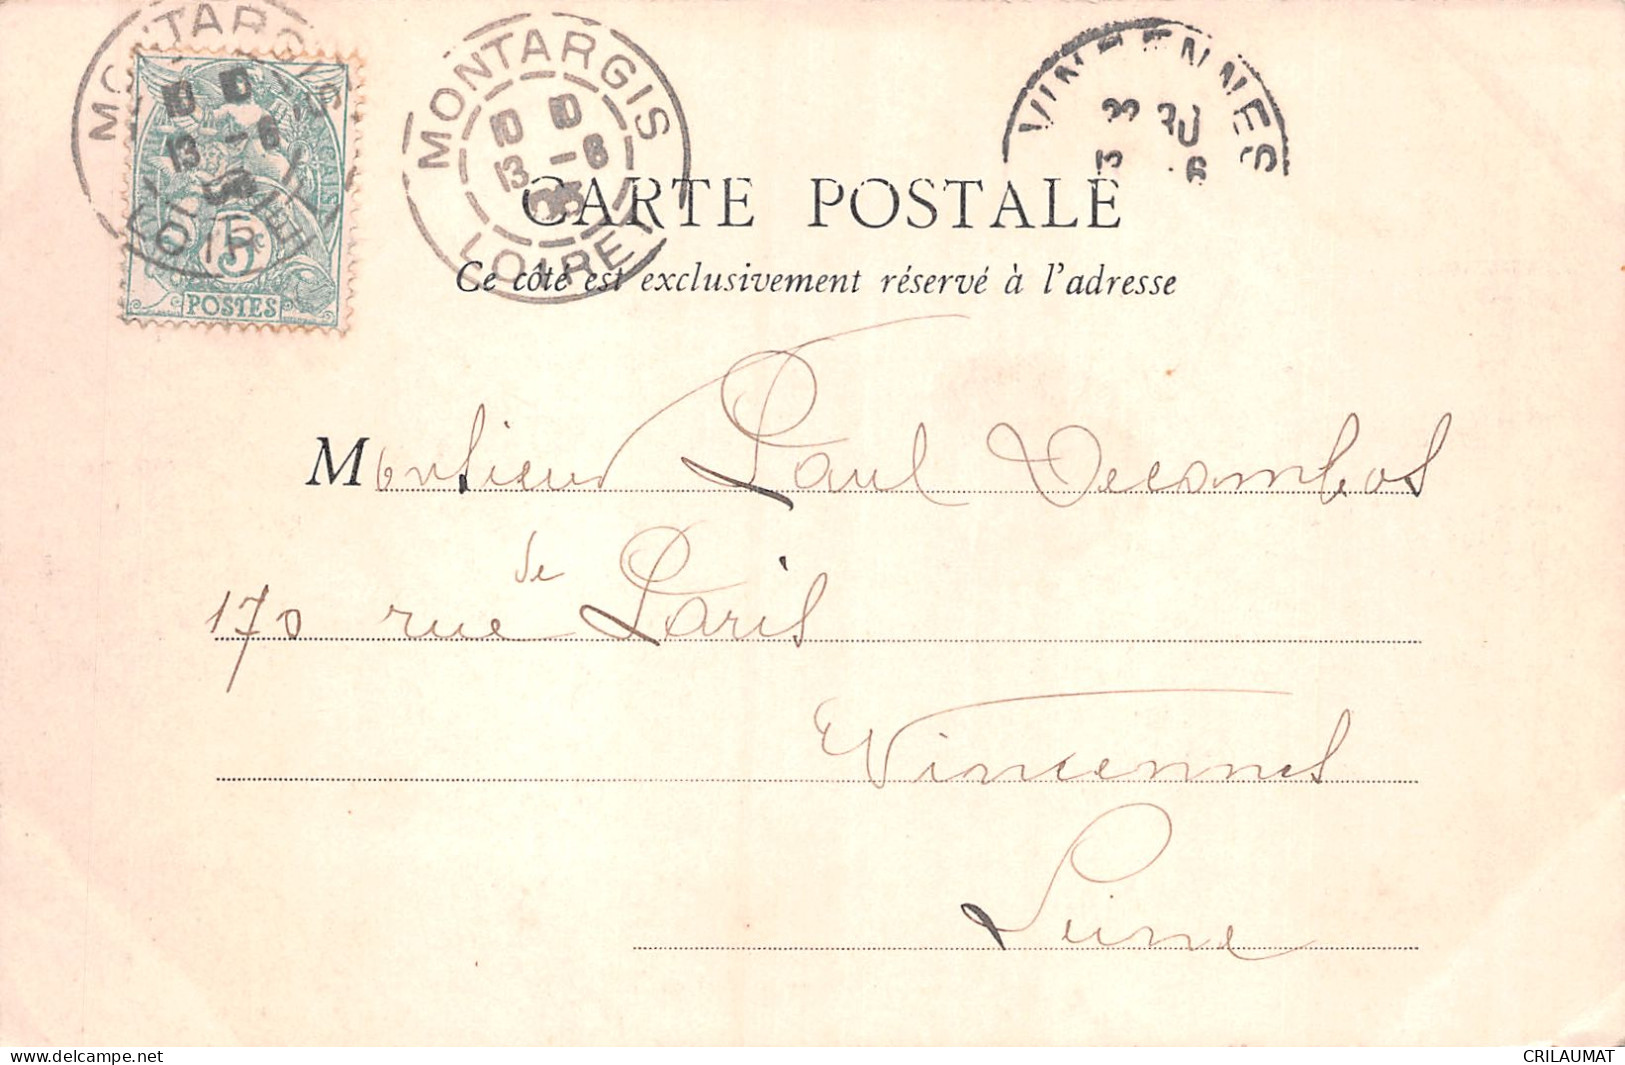 MONTARGIS
13 -6
LOIRET
5c
POSTES
MONTARGIS
13 -6
LOIRET
VINCENNES
CARTE POSTALE
Ce côté est exclusivement réservé à l'adresse
Monsieur Paul Decombos
170 rue de Paris
Vincennes
Seine
www.delcampe.net
CRILAUMAT